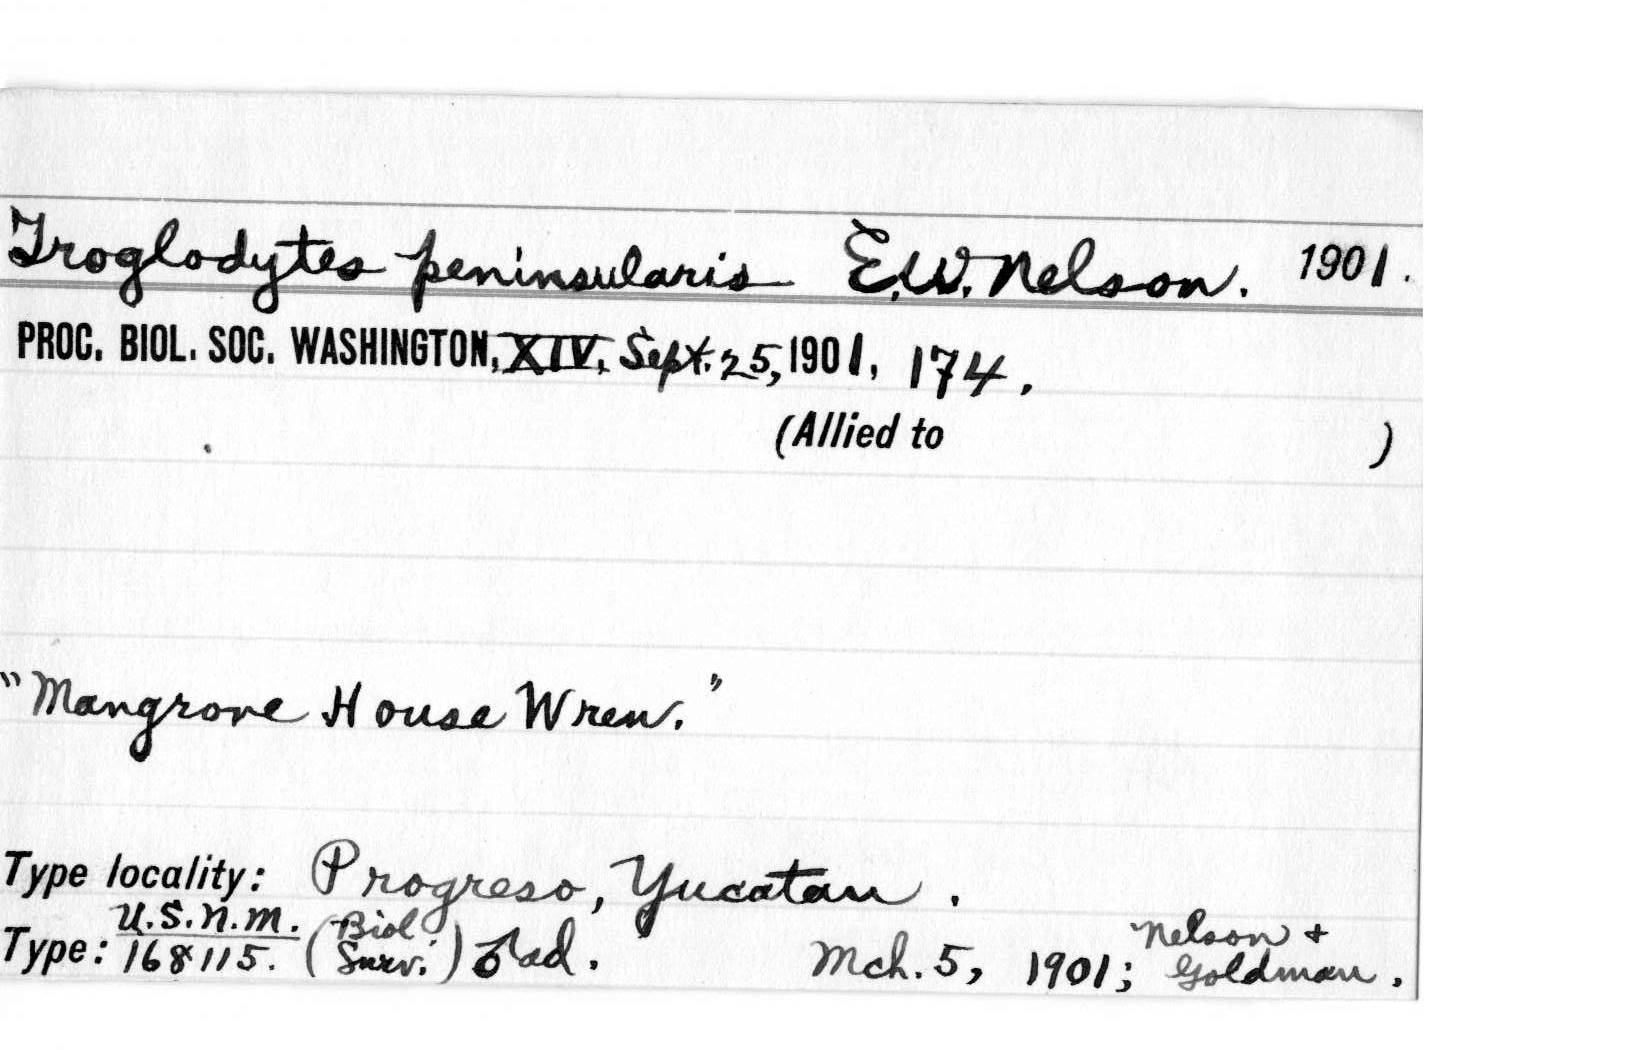 Troglodytes peninsularis E.W. Nelson. 1901.
PROC. BIOL. SOC. WASHINGTON, XIV, Sept. 25, 1901, 174.
(Allied to )
"Mangrove House Wren."
Type locality: Progreso, Yucatan.
Type: U.S.N.M. 168115. (Biol Surv.) ♂ ad. Mch. 5, 1901; Nelson + Goldman.